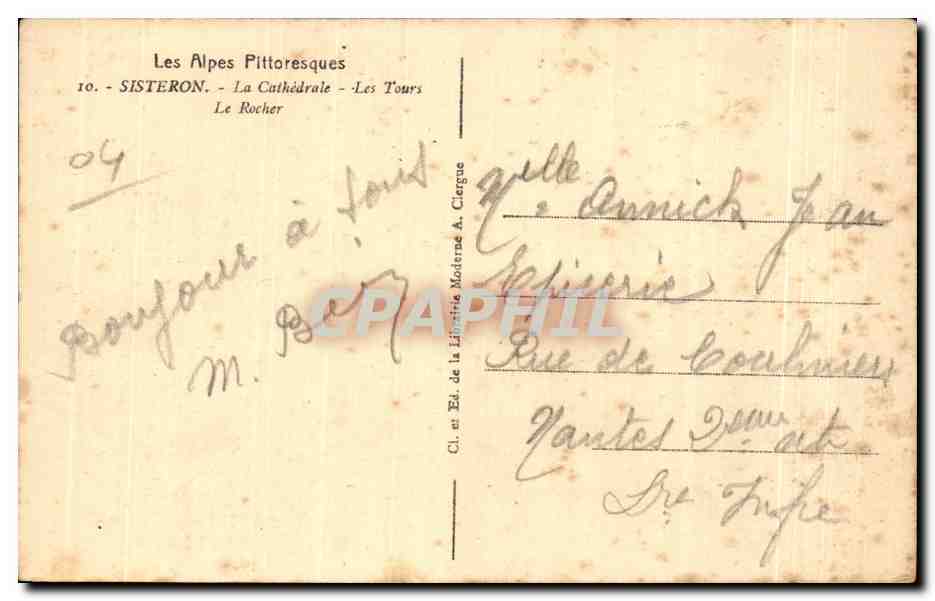 Les Alpes Pittoresques
10. - SISTERON. - La Cathédrale - Les Tours
Le Rocher
04
Bonjour à tous
M.
Cl. et Ed. de la Librairie Moderne A. Clergue
CPAPHIL
Melle Annick Jean
Epicerie
Rue de Coulmiers
Nantes
Lre Infre